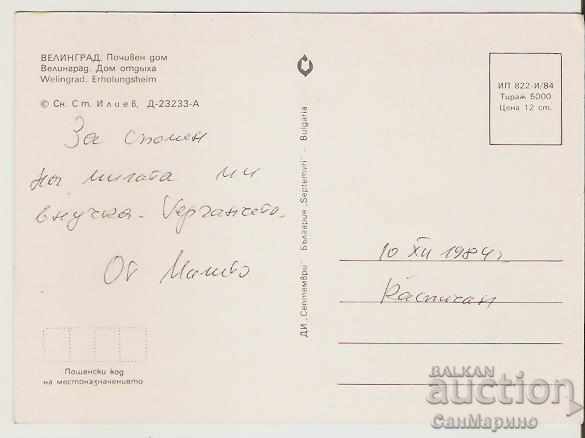 ВЕЛИНГРАД. Почивен дом
Велинград. Дом отдыха
Welingrad. Erholungsheim
© Сн. Ст. Илиев, Д-23233-А
За спомен
на милата ми
внучка -
От
ДИ „Септември" - България „Septemvri" - Bulgaria
ИП 822-И/84
Тираж 5000
Цена 12 ст.
10 XII 1984 г
Каспичан
Пощенски код
на местоназначението
BALKAN
auction
СанМарино